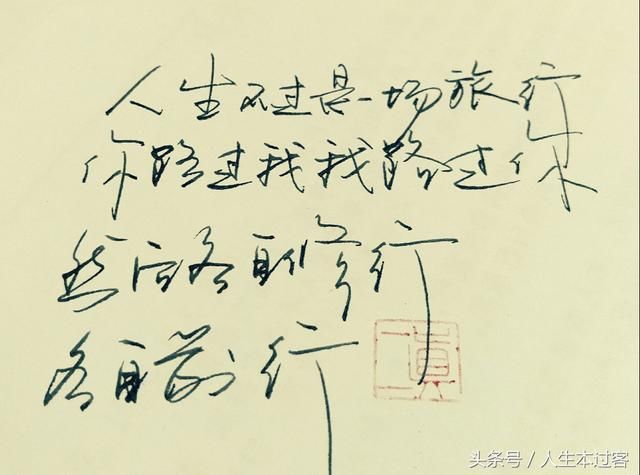 人生不过是一场旅行
你路过我我路过你
然后各自修行
各自前行
头条号／人生本过客